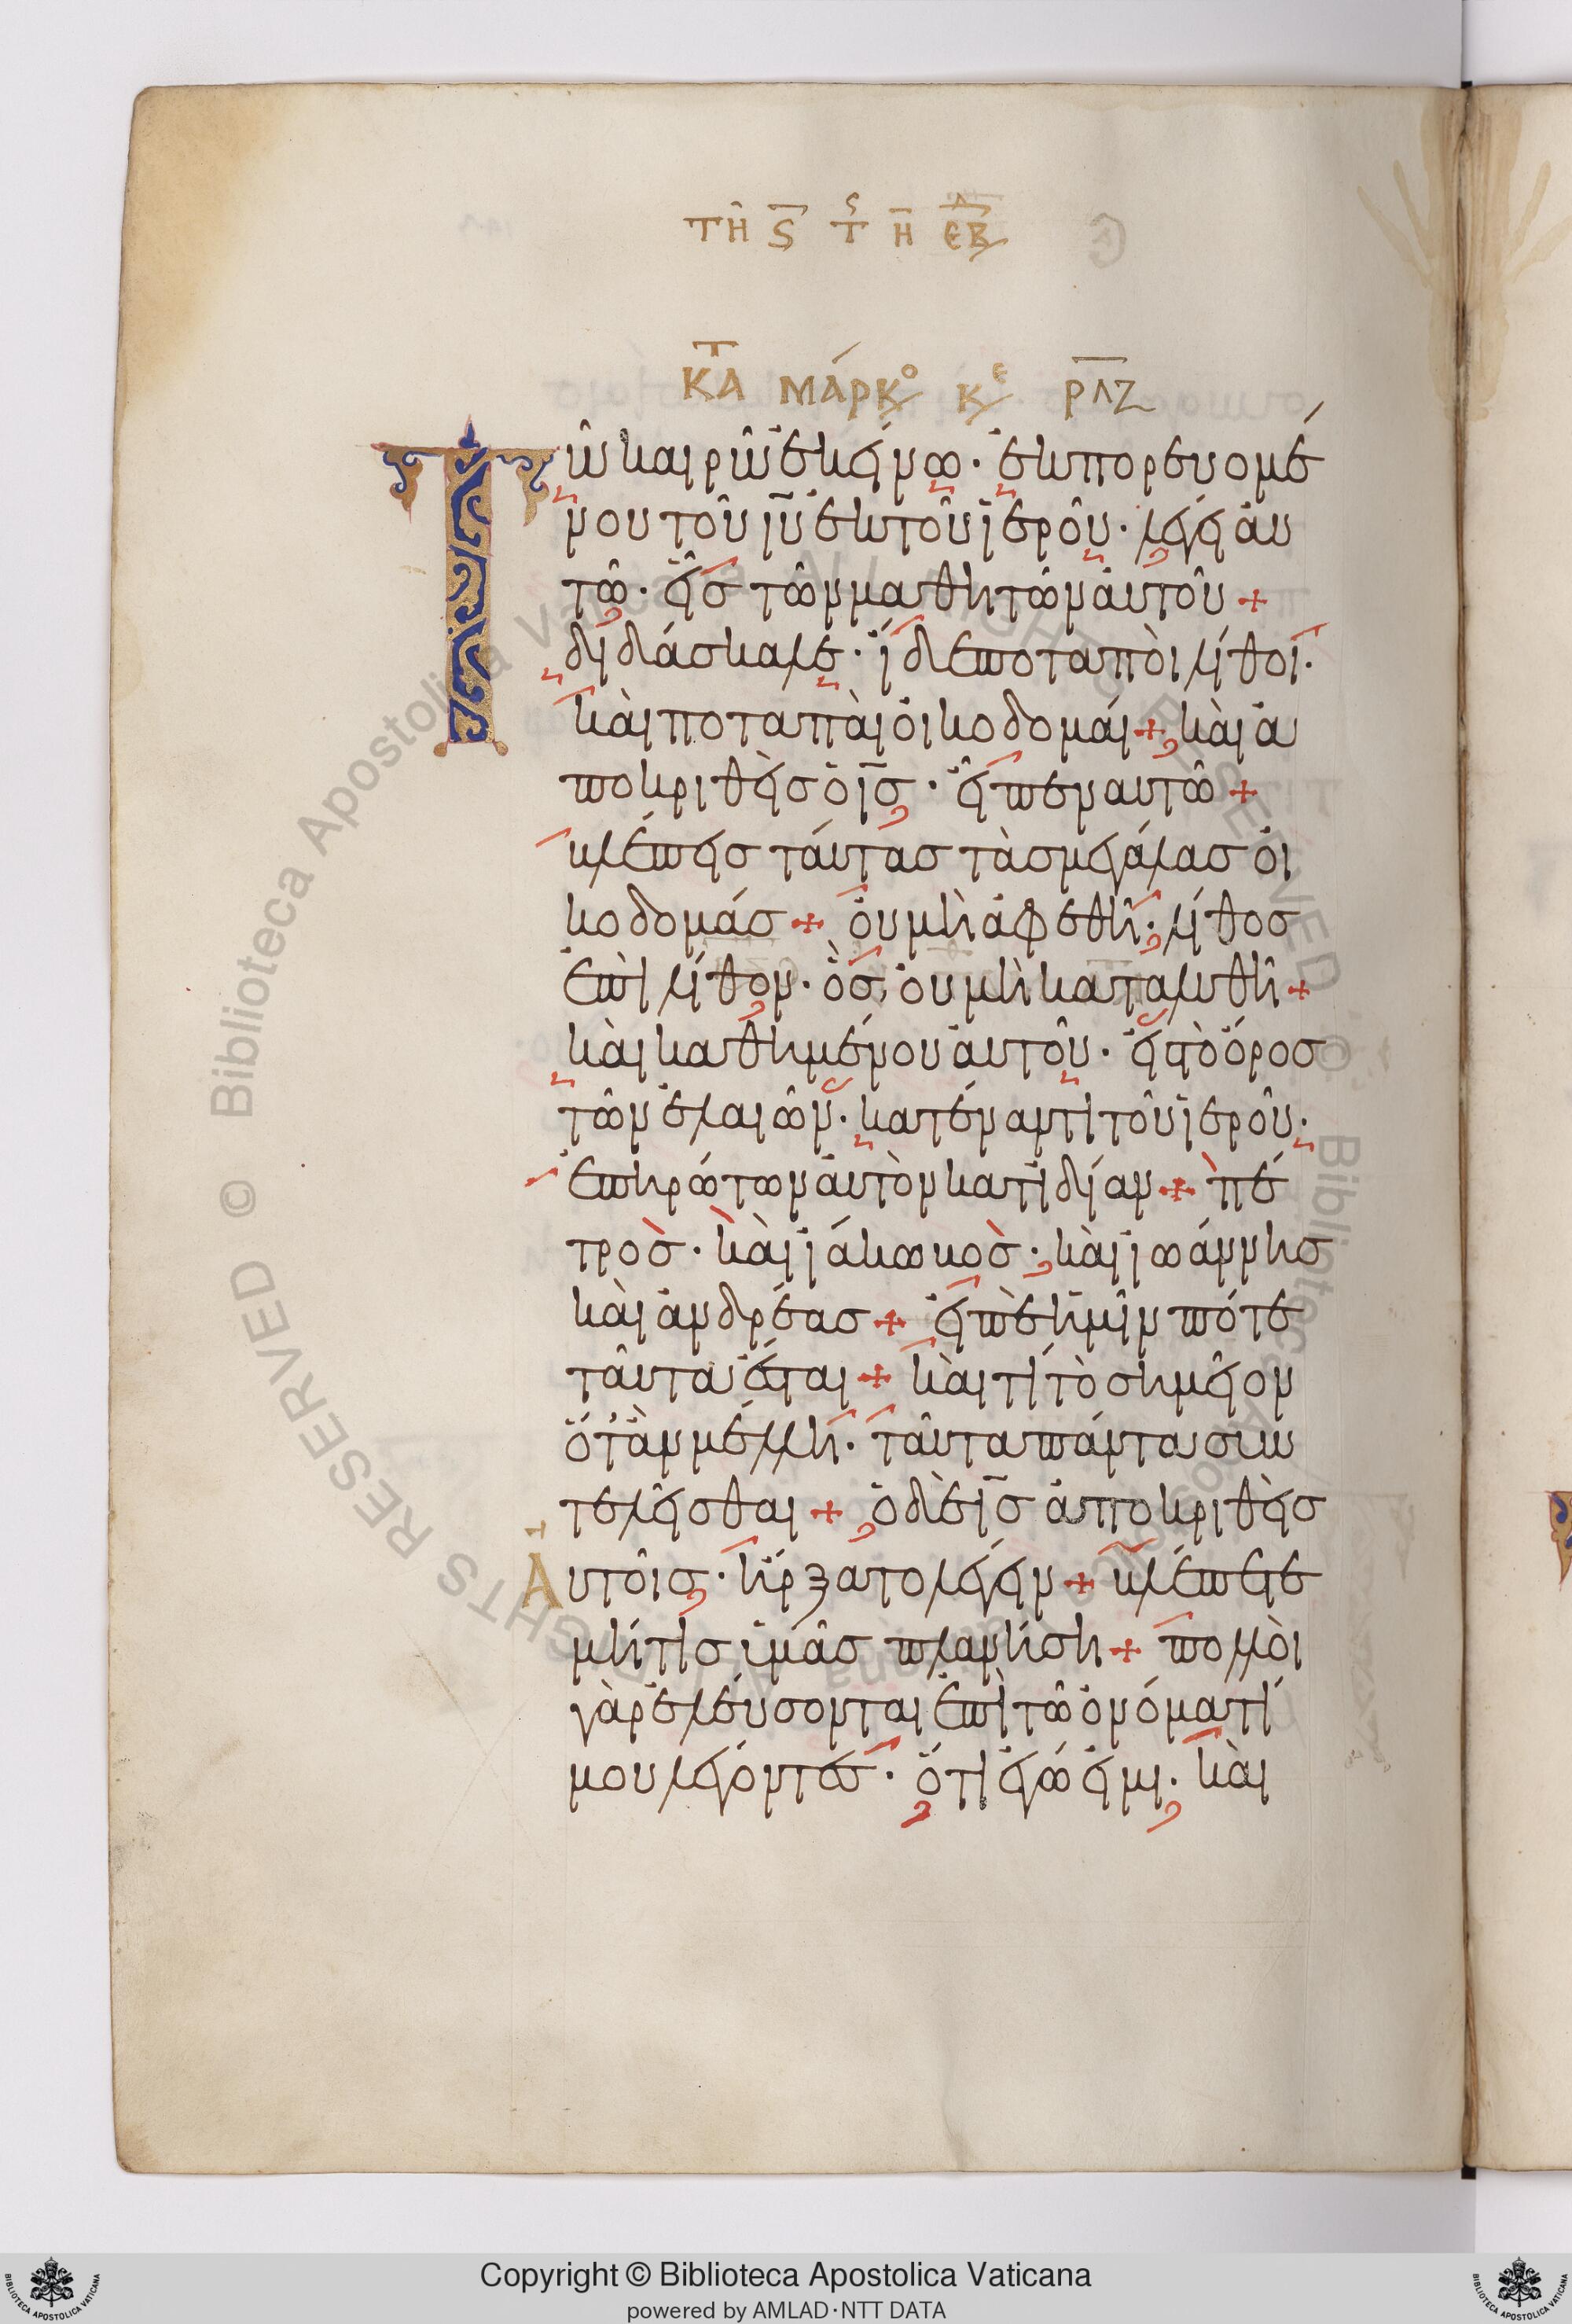 ΤΗ Ϛ Τ Η ΕΒΔ
ΚΑΤ ΜΑΡΚΟ ΚΕ ΡΛΖ
Τῶ καιρῶ ἐκείνω· ἐκπορευομέ
νου τοῦ ιυ ἐκ τοῦ ἱεροῦ· λέγει ἀυ
τῶ· εἷσ τῶν μαθητῶν ἀυτοῦ +
διδάσκαλε· ἴδε ποταποὶ λίθοι·
καὶ ποταπαὶ ὀικοδομάι + καὶ ἀ
ποκριθεὶσ ὁ ισ· εἶπεν αυτῶ +
βλέπεισ τάυτασ τὰσ μεγάλασ ὀι
κοδομάσ + ὀυ μὴ ἀφεθῆ· λίθοσ
ἐπὶ λίθον· ὃσ ὀυ μὴ καταλυθῆ +
καὶ καθημένου ἀυτοῦ· εἰσ τὸ ὄροσ
τῶν ἐλαιῶν· κατέναντι τοῦ ἱεροῦ·
ἐπηρώτων ἀυτὸν κατιδίαν + πέ
τροσ· καὶ ἰάκωβοσ· καὶ ἰωάννησ
καὶ ἀνδρέασ + εἰπὲ ἡμῖν πότε
ταῦτα ἔσται + καὶ τί τὸ σημεῖον
ὅτἂν μέλλη· ταῦτα πάντα συν
τελεῖσθαι + ὁ δὲ ισ ἀποκριθεὶσ
Αυτοῖσ· ἤρξατο λέγειν + βλέπετε
μήτισ ὑμᾶσ πλανήση + πολλοὶ
γὰρ ἐλέυσονται ἐπὶ τῶ ὀνόματί
μου λέγοντεσ· ὅτι ἐγώ εἰμι· καὶ
Copyright © Biblioteca Apostolica Vaticana
powered by AMLAD·NTT DATA
© Biblioteca Apostolica Vaticana ALL RIGHTS RESERVED